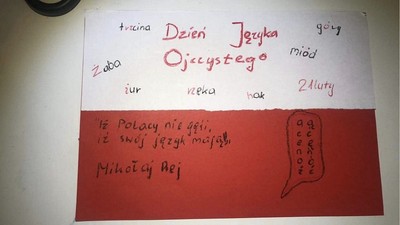 trzcina
Dzień Języka
góry
Ojczystego
miód
żaba
żur
rzeka
hak
21 luty
iż Polacy nie gęsi,
iż swój język mają!
Mikołaj Rej